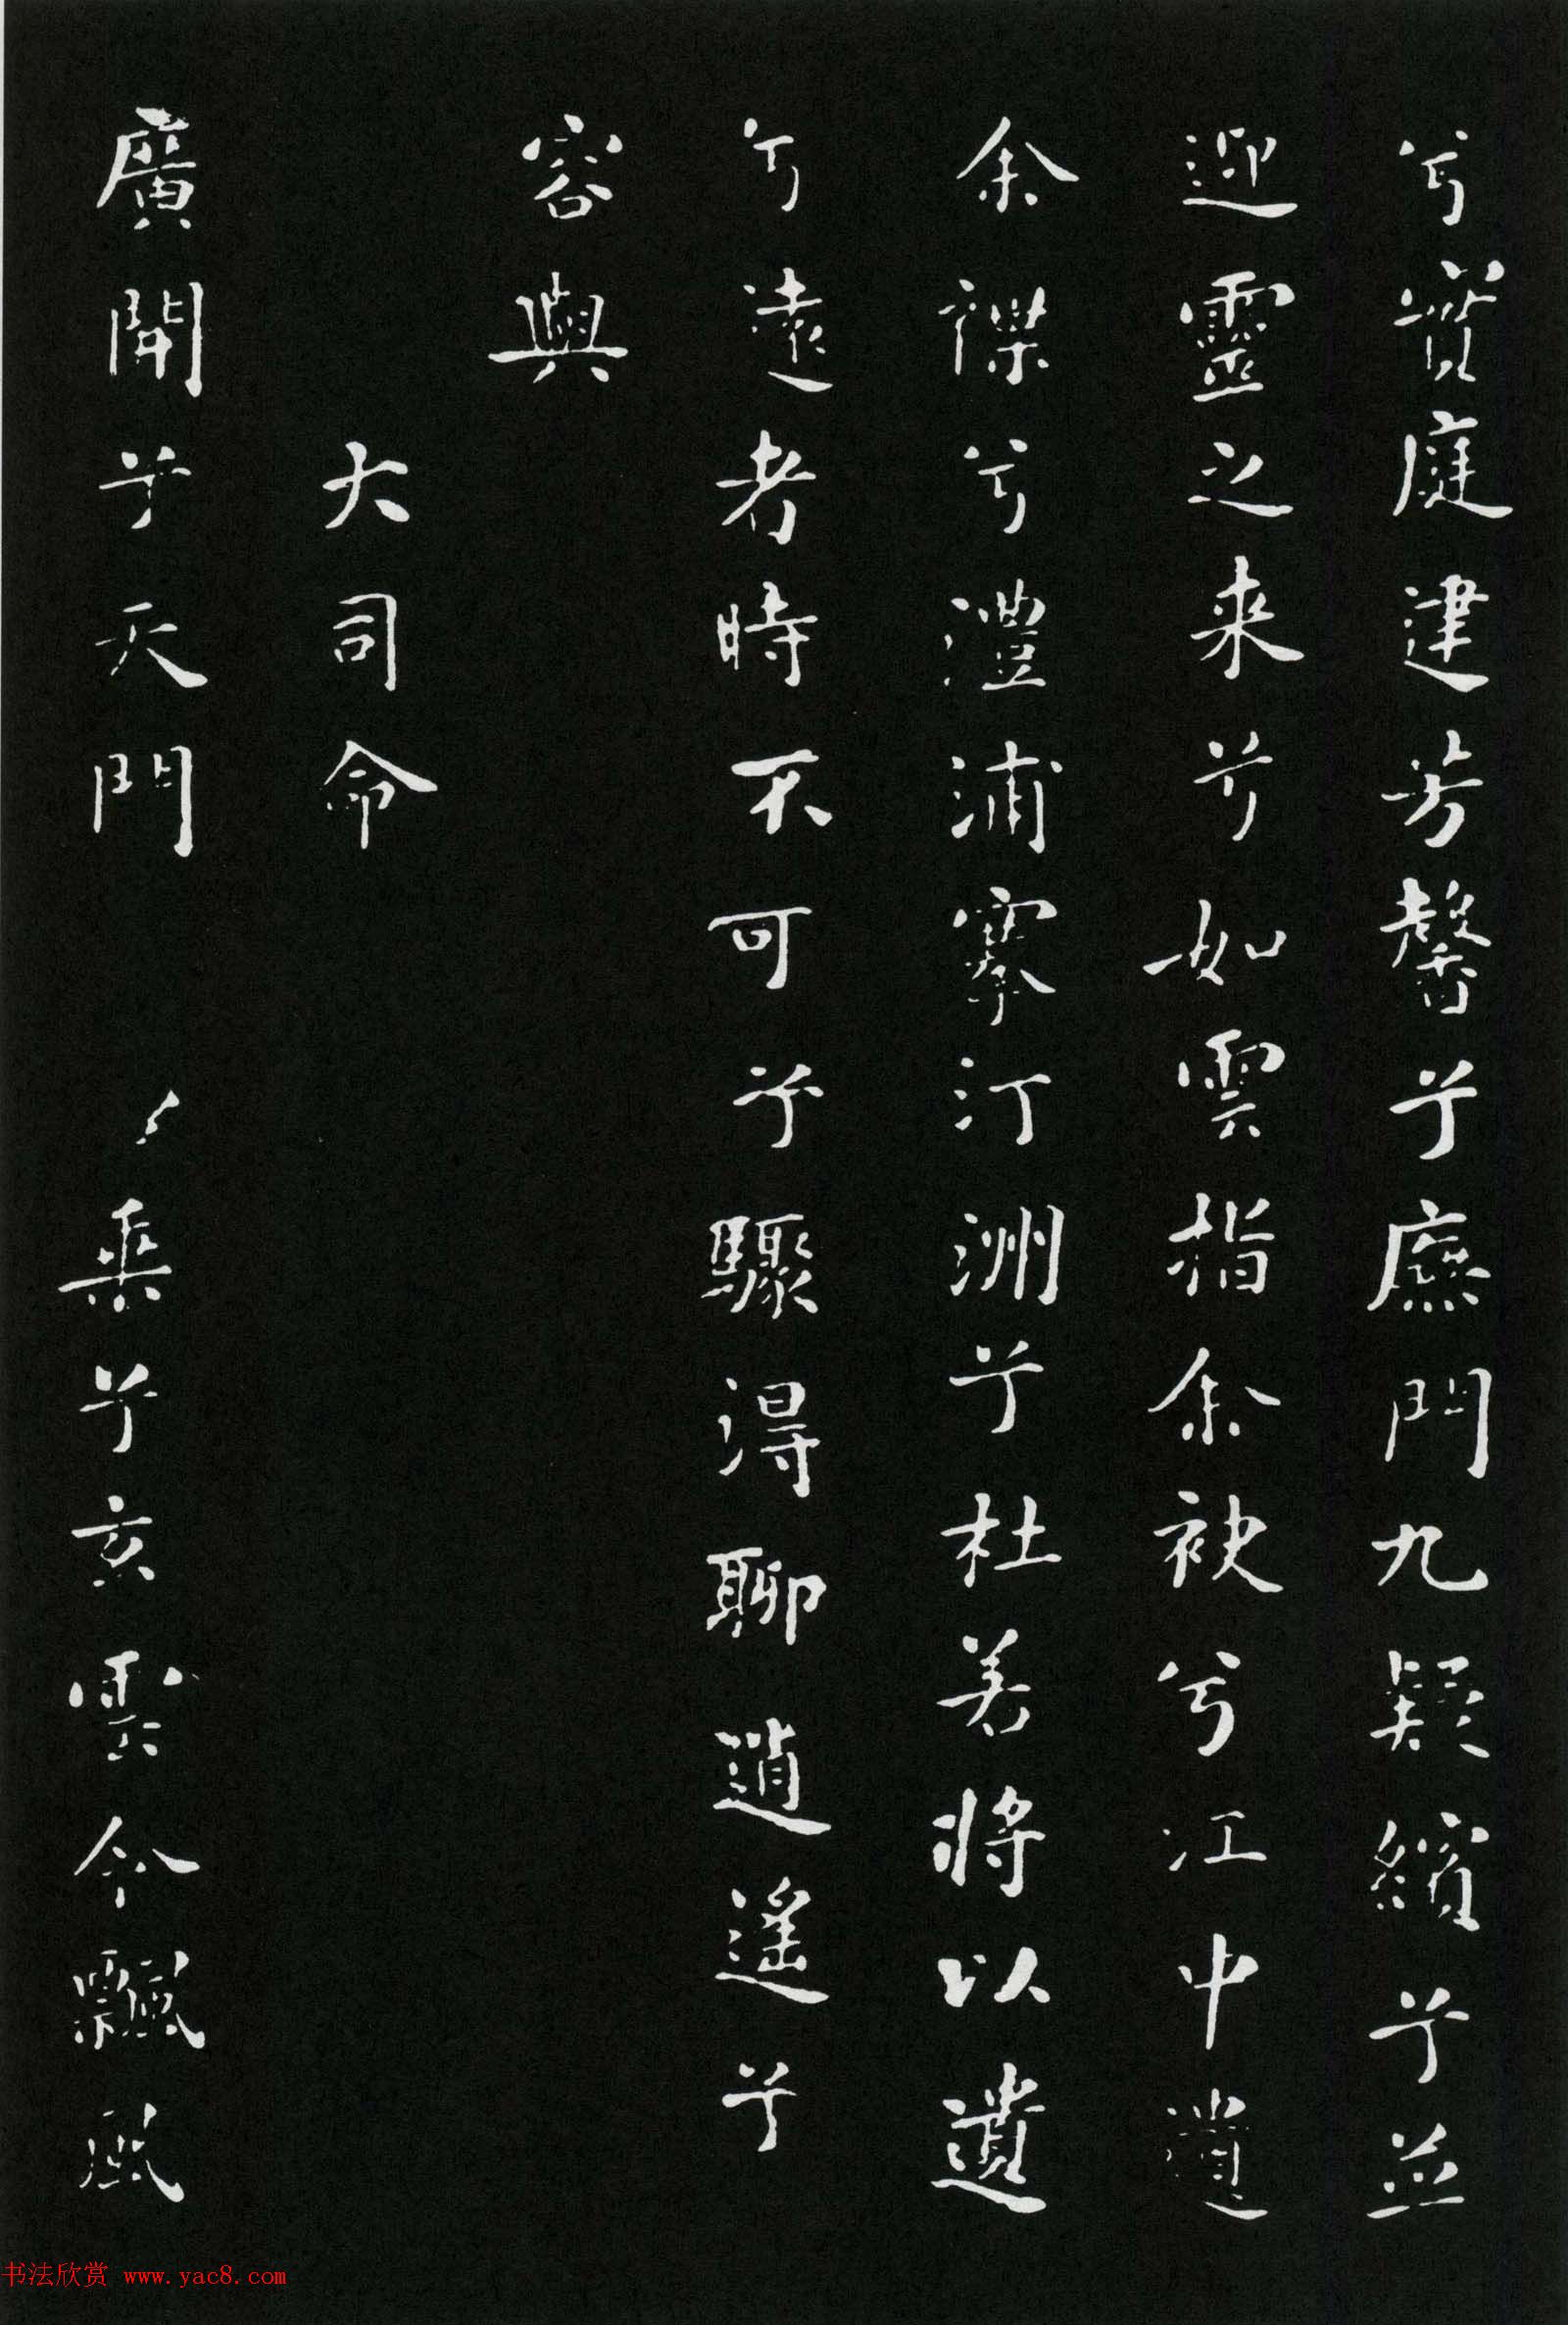 兮實庭建芳馨兮廡門九疑繽兮並
迎靈之來兮如雲指余袂兮江中遺
余褋兮澧浦搴汀洲兮杜若將以遺
兮遠者時不可兮驟得聊逍遙兮
容與
大司命
廣開兮天門 乘兮玄雲令飄風
书法欣赏 www.yac8.com